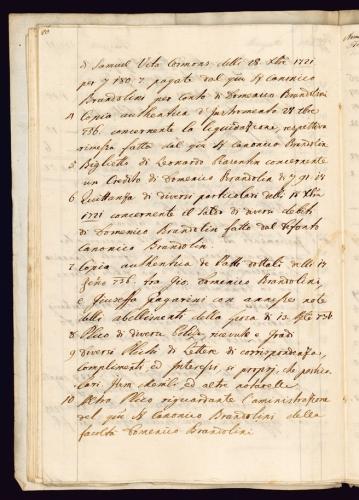 80
di Samuel Vita Cormons delli 18 Xbre 1721
per 7 180.7. pagate dal q:m Sr Canonico
Brandolini per conto di Domenico Brandolini
4 Copia authentica d'Instromento 27 8bre
736. concernente la liquidazione, respettiva
rimessa fatta dal q:m Sr Canonico Brandolin
5 Biglietto di Leonardo concernente
un Credito di Domenico Brandolin di 7 91:18
6 Quittanza di diversi particolari delli 15 Xbre
1721 concernente il saldo di diversi debiti
di Domenico Brandolin fatte dal defonto
Canonico Brandolin.
7 Copia authentica de Patti dottali delli 17
736. tra Gio. Domenico Brandolini,
e Giuseppa Gagarini con annessa nota
delli abellimenti della sposa di 13. 736
8 Plico di diverse Polize ricevute e
9 diversi Plichi di Lettere di corrispondenza,
complimenti ed Interessi si propri, che
lari ed altre notarelle
10 Altro Plico riguardante l'aministrazione
del q:m Sr Canonico Brandolini della
facoltà Domenico Brandolini